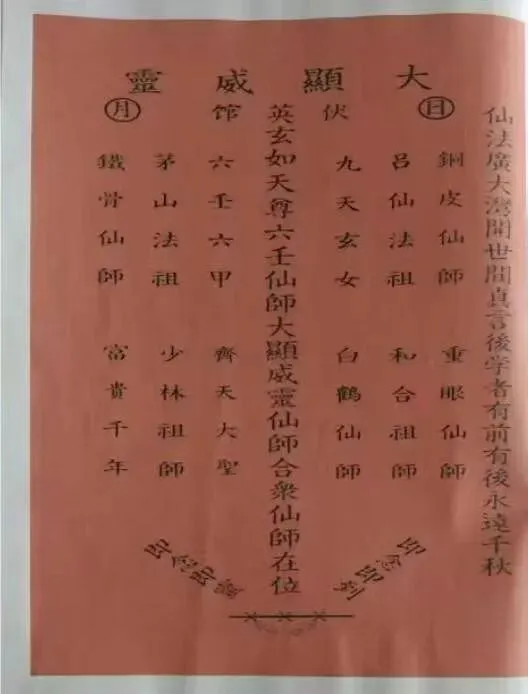 大顯威靈
仙法廣大灣開世間真言後学者有前有後永遠千秋
日
銅皮仙師 重眼仙師
呂仙法祖 和合祖師
伏
九天玄女 白鶴仙師
英玄如天尊六壬仙師大顯威靈仙師合衆仙師在位
馆
六壬六甲 齊天大聖
茅山法祖 少林祖師
月
鐵骨仙師 富貴千年
即念即到